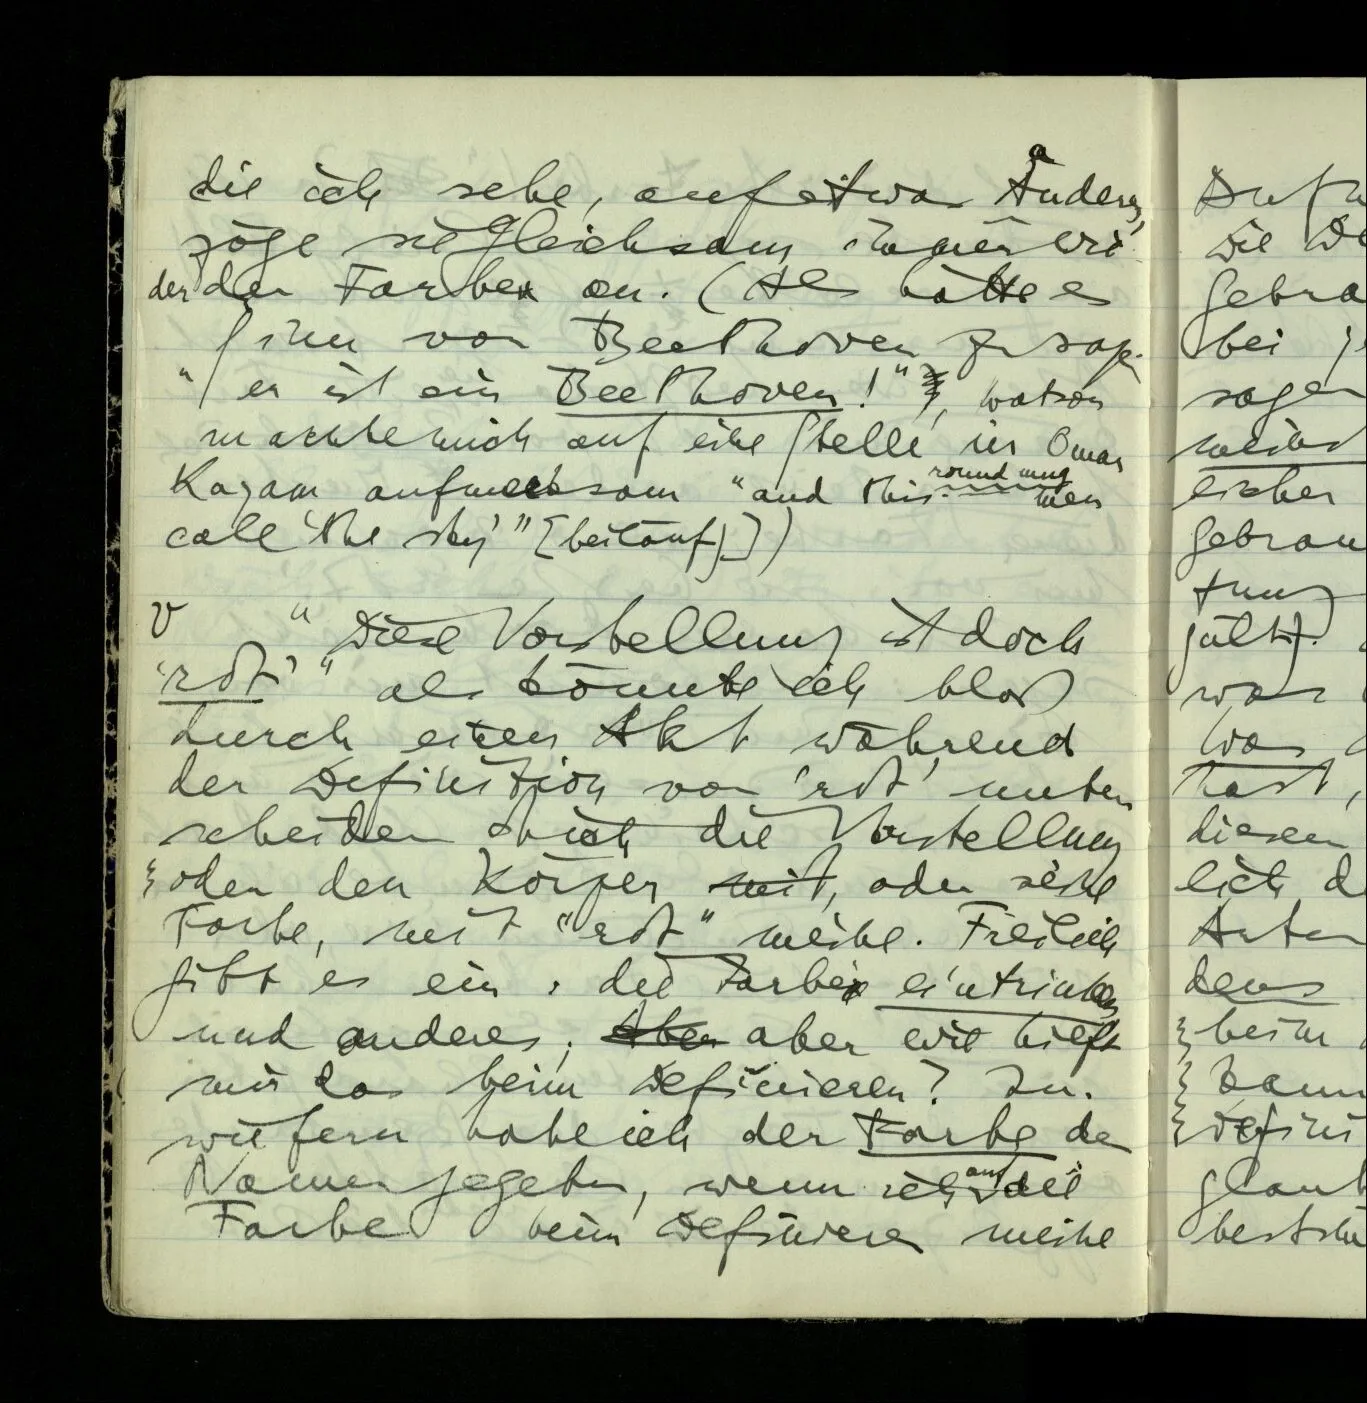 die ich sehe, auf etwas Anderes,
zöge sie gleichsam immer wie-
der den Farben an. (Als hätte es
Sinn von Beethoven zu sagen
"er ist ein Beethoven!", Watson
machte mich auf eine Stelle in Omar
Kayam aufmerksam "and this round mug men
call 'the sky'" [beiläuf.])
v "Diese Vorstellung ist doch
'rot'" als könnte ich bloß
durch einen Akt während
der Definition von 'rot' unter-
scheiden ob ich die Vorstellung
oder den Körper mit, oder seine
Farbe, mit "rot" meine. Freilich
gibt es ein: die Farbe eintrinken
und anderes; Aber aber wie hilft
mir das beim Definieren? In-
wiefern habe ich der Farbe den
Namen gegeben, wenn ich auf die
Farbe beim Definieren meine
die We
bei
sagen
meinst
gebrau
gält).
was
Was
hast,
diesen
lich d
denn
beim
kann
Defini
glaub